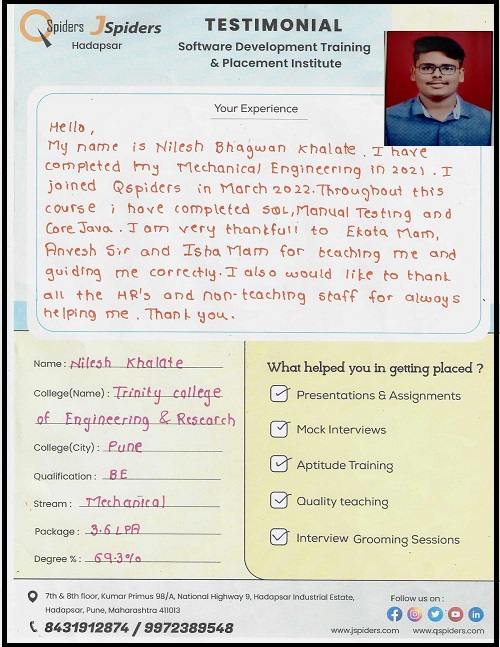 QSpiders JSpiders
Hadapsar
TESTIMONIAL
Software Development Training
& Placement Institute
Your Experience
Hello,
My name is Nilesh Bhagwan Khalate. I have
completed my Mechanical Engineering in 2021. I
joined Qspiders in March 2022. Throughout this
course i have completed SQL, Manual Testing and
Core Java. I am very thankfull to Ekata Mam,
Anvesh Sir and Isha Mam for teaching me and
guiding me correctly. I also would like to thank
all the HR's and non-teaching staff for always
helping me. Thank you.
Name : Nilesh Khalate
College(Name) : Trinity college
of Engineering & Research
College(City) : Pune
Qualification : BE
Stream : Mechanical
Package : 3.6 LPA
Degree % : 69.3%
What helped you in getting placed ?
Presentations & Assignments
Mock Interviews
Aptitude Training
Quality teaching
Interview Grooming Sessions
7th & 8th floor, Kumar Primus 98/A, National Highway 9, Hadapsar Industrial Estate,
Hadapsar, Pune, Maharashtra 411013
8431912874 / 9972389548
Follow us on :
www.jspiders.com www.qspiders.com